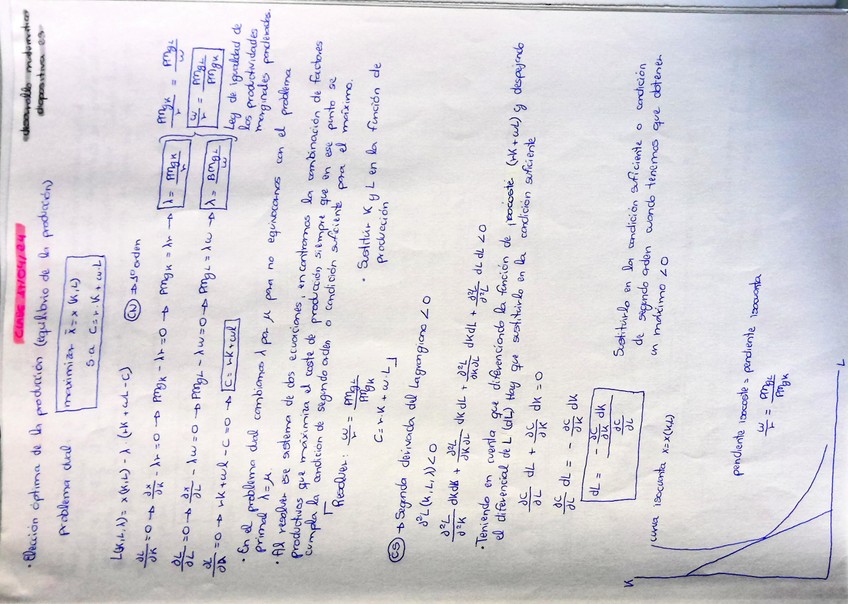 CLASE 17/04/24
desarrollo matemático
diapositiva 25
· Elección óptima de la producción (equilibrio de la producción)
problema dual
maximizar x̄ = x(K,L)
s.a C = r·K + w·L
L(K,L,λ) = x(K,L) - λ (rK + wL - C)
CN → 1º orden
∂L/∂K = 0 → ∂x/∂K - λr = 0 → PMgK - λr = 0 → PMgK = λr → λ = PMgK/r
∂L/∂L = 0 → ∂x/∂L - λw = 0 → PMgL - λw = 0 → PMgL = λw → λ = PMgL/w
PMgK/r = PMgL/w
w/r = PMgL/PMgK
Ley de igualdad de
las productividades
marginales ponderadas.
∂L/∂λ = 0 → rK + wL - C = 0 → C = rK + wL
· En el problema dual cambiamos λ por μ para no equivocarnos con el problema
primal λ = μ.
· Al resolver ese sistema de dos ecuaciones, encontramos la combinación de factores
productivos que maximiza el coste de producción siempre que en ese punto se
cumpla la condición de segundo orden o condición suficiente para el máximo.
Resolver: w/r = PMgL/PMgK
C = r·K + w·L
· Sustituir K y L en la función de
producción
CS → Segunda derivada del Lagrangiano < 0
∂²L(K,L,λ) < 0
∂²L/∂²K dKdK + ∂²L/∂K∂L dKdL + ∂²L/∂K∂L dKdL + ∂²L/∂²L dLdL < 0
· Teniendo en cuenta que diferenciando la función de isocoste (rK + wL) y despejando
el diferencial de L (dL) Hay que sustituirlo en la condición suficiente
∂C/∂L dL + ∂C/∂K dK = 0
∂C/∂L dL = - ∂C/∂K dK
dL = - ∂C/∂K dK / ∂C/∂L
Sustituirlo en la condición suficiente o condición
de segundo orden cuando tenemos que obtener
un máximo < 0
K
una isocuanta x = x(K,L)
L
pendiente isocoste = pendiente isocuanta
w/r = PMgL/PMgK